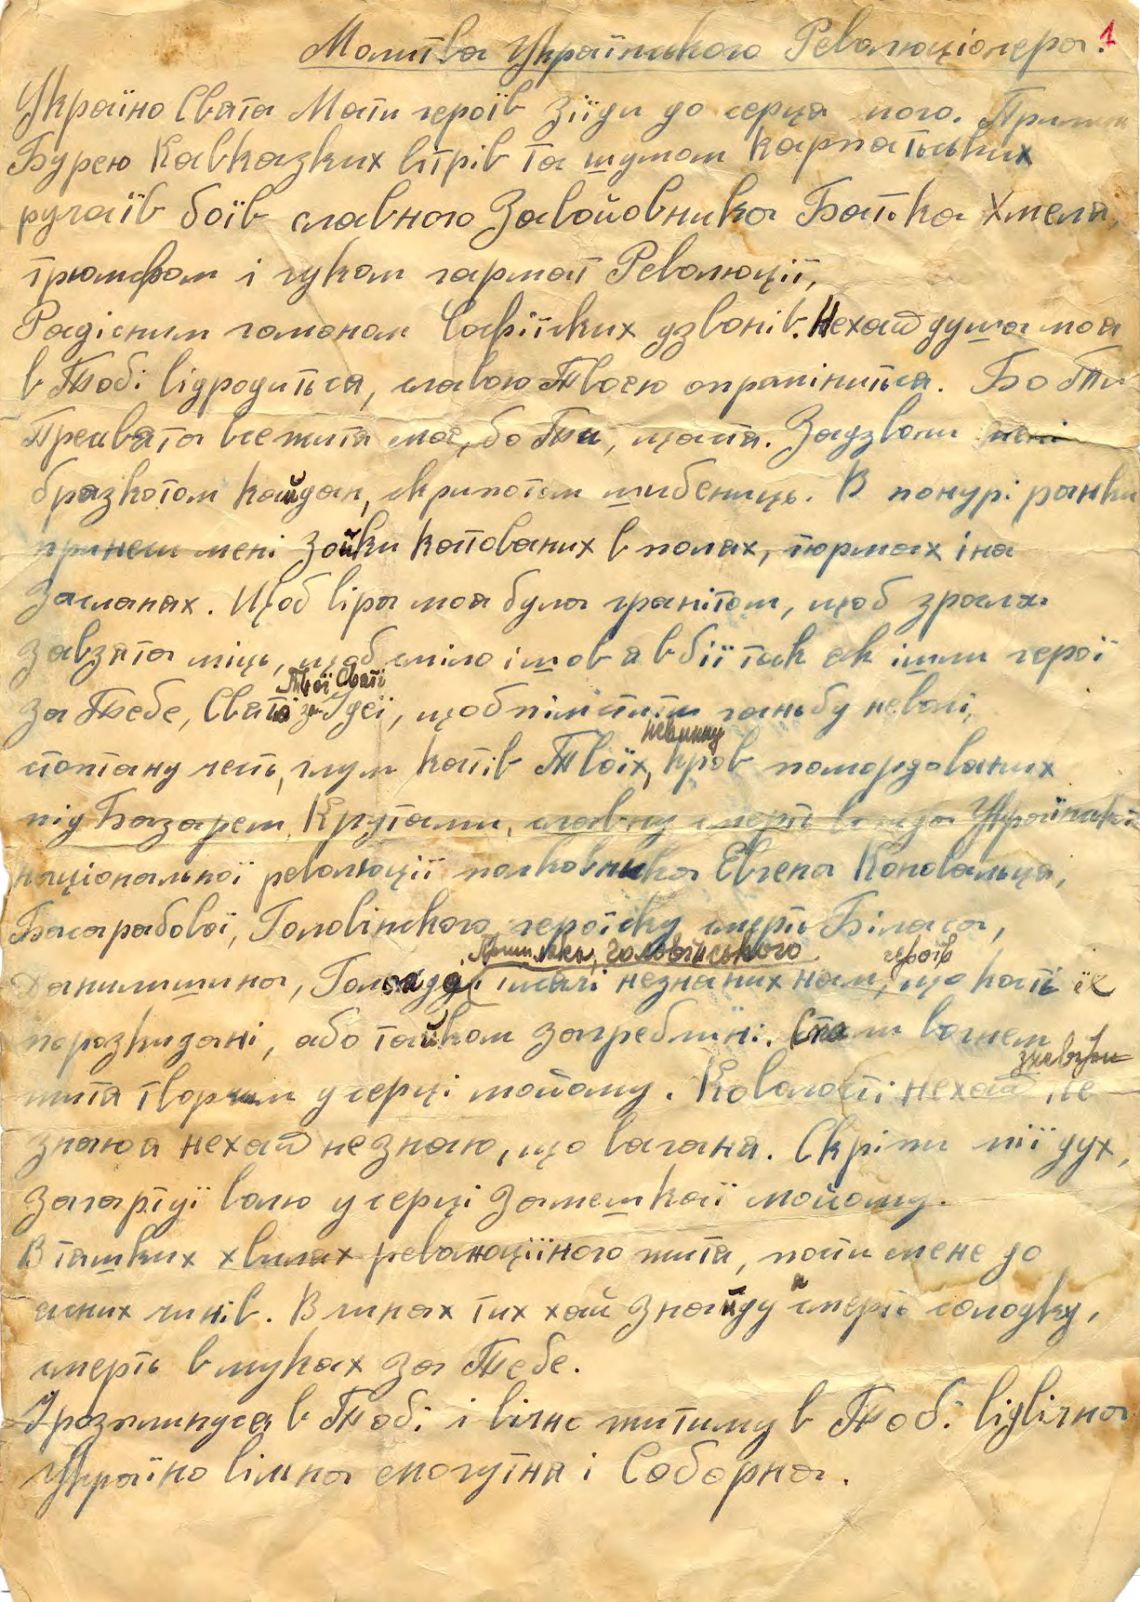 Молитва Українського Революціонера. 1
Україно Свята Мати героїв зіїди до серця мого.
Бурею Кавказких вітрів та шумом Карпатських
ручаїв боїв славного Завойовника Батька Хмеля,
трюмфом і гуком гармат Революції,
Радісним гомоном Софіїских дзвонів. Нехай душа моя
в Тобі відродиться, славою Твоєю опроміниться. Бо Ти
Пресвята все життя моє, бо Ти, щастя. Задзвони мені
бразкотом кайдан, скрипотом шибениць. В понурі ранки
принеси мені зойки катованих в полях, тюрмах і на
засланях. Щоб віра моя була гранітом, щоб зросла
завзята міць, щоб сміло ішов я в бії так як ішли герої
Твої Святі
за Тебе, Свята за Ідеї, щоб пімстити ганьбу неволі,
невинну
стоптану честь, глум катів Твоїх, кров помордованих
під Базарем, Крутами, славну смерть вожда Української
національної революції полковника Евгена Коновальця,
Басарабової, Головінского, героїску смерть Біласа,
головінського героїв
Данилишина, тисячі незнаних нам, що кости їх
порозкидані, або тайком загребльні. Стань вогнем
зневіри
життя творчим у серці мойому. Коволости нехай не
знаю я нехай не знаю, що вагання. Скріпи міїй дух,
загартуї волю у серці замешкаї мойому.
В тяжких хвилях революціїного життя, мене до
ясних чинів. В чинах тих хай знайду я смерть солодку,
смерть в муках за Тебе.
І розплинуся в Тобі і вічно житиму в Тобі відвічна
Україно вільна могутня і Соборна.